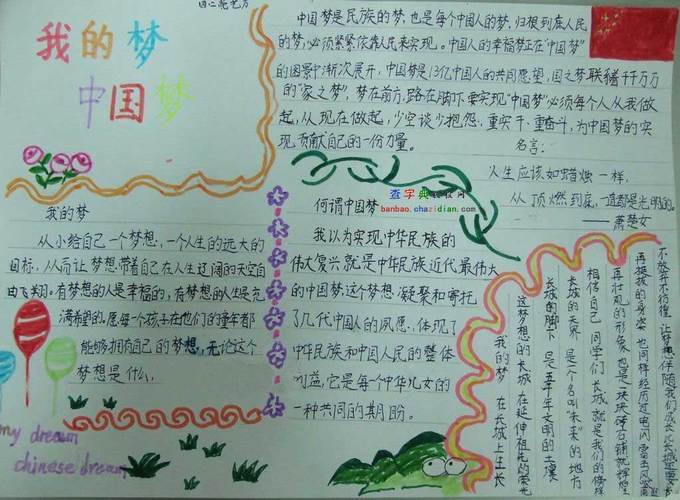 我的梦
中国梦
中国梦是民族的梦,也是每个中国人的梦,归根到底人民
的梦,必须紧紧依靠人民来实现。中国人的幸福梦正在"中国梦"
的图景中渐次展开,中国梦是13亿中国人的共同愿望,国之梦联系千千万万
的"家之梦",梦在前方,路在脚下,要实现"中国梦"必须每个人从我做
起,从现在做起,少空谈少抱怨、重实干、重奋斗,为中国梦的实
现贡献自己的一份力量。
名言:
人生应该如蜡烛一样,
从顶燃到底,一直都是光明的。
——萧楚女
查字典
banbao.chazidian.com
我的梦
从小给自己一个梦想,一个人生的远大的
目标,从而让梦想带着自己在人生辽阔的天空自
由飞翔。有梦想的人是幸福的,有梦想的人生是充
满希望的。愿每一个孩子在他们的童年都
能够拥有自己的梦想,无论这个
梦想是什么.
何谓中国梦
我以为实现中华民族的
伟大复兴就是中华民族近代最伟大
的中国梦这个梦想凝聚和寄托
了几代中国人的夙愿、体现了
中华民族和中国人民的整体
利益,它是每个中华儿女的
一种共同的期盼。
不放弃不彷徨 让梦想伴随我们成长
再挺拔的身姿 也同样经历过电闪雷击风
再壮观的形象 也是一块块砖石铺就
相信自己 同学们 长城 就是我们的
长城的尽头 是一个名叫"未来"的地方
长城的脚下 是五千年文明的土壤
这梦想的长城 在延伸祖先的荣光
我的梦 在长城上生长
my dream
chinese dream